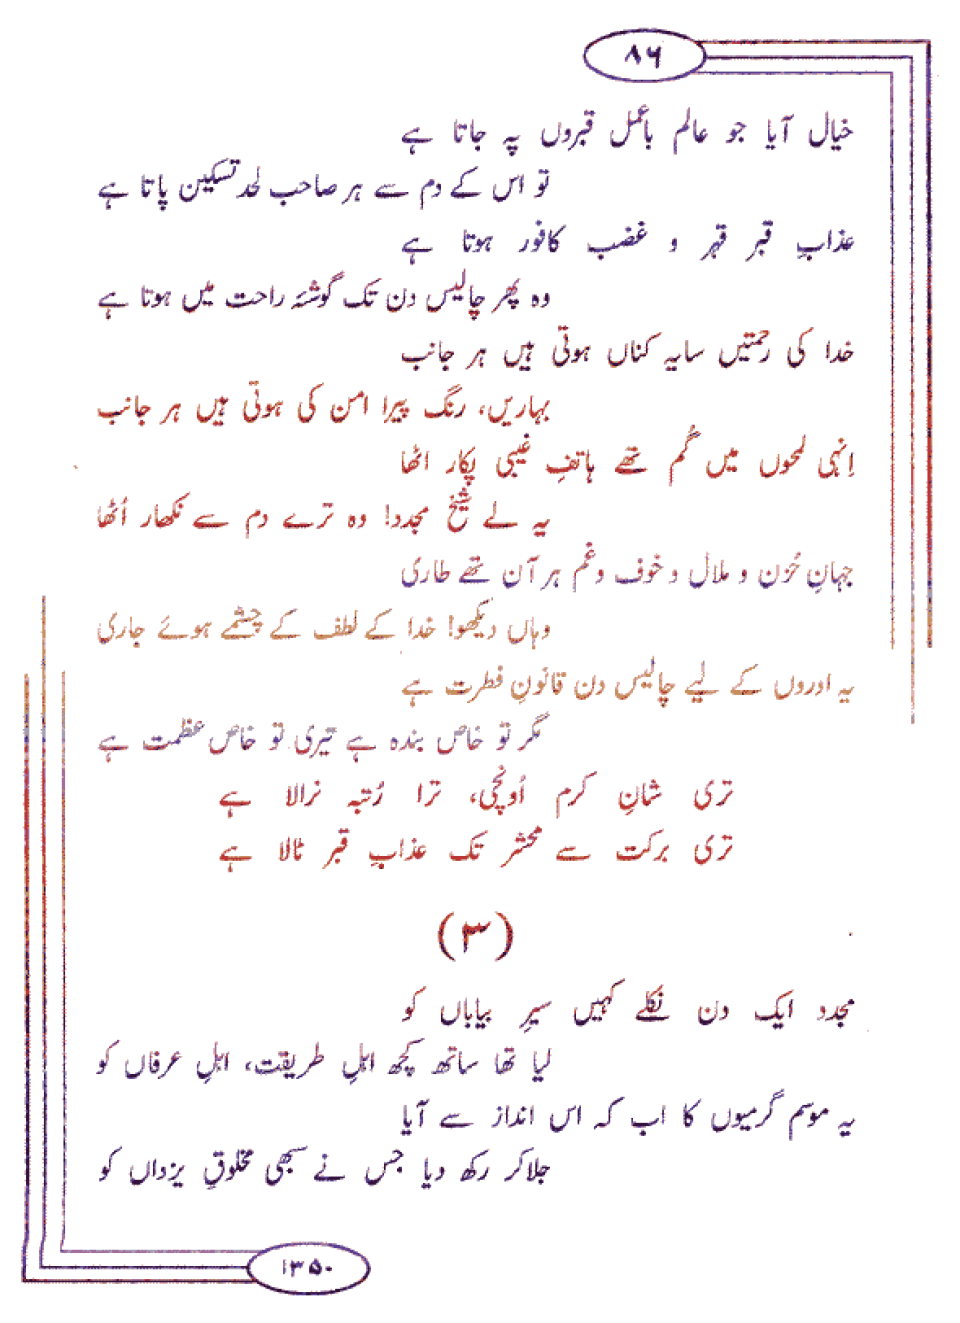 ۸۶
خیال آیا جو عالم باعمل قبروں پہ جاتا ہے
تو اس کے دم سے ہر صاحب لحد تسکین پاتا ہے
عذابِ قبر قہر و غضب کافور ہوتا ہے
وہ پھر چالیس دن تک گوشۂ راحت میں ہوتا ہے
خدا کی رحمتیں سایہ کناں ہوتی ہیں ہر جانب
بہاریں، رنگ پیرا امن کی ہوتی ہیں ہر جانب
اِنہی لمحوں میں گُم تھے ہاتفِ غیبی پکار اٹھا
یہ لے شیخ مجدد! وہ ترے دم سے نکھار اُٹھا
جہانِ حُزن و ملال و خوف و غم ہر آن تھے طاری
وہاں دیکھو! خدا کے لطف کے چشمے ہوئے جاری
یہ اوروں کے لیے چالیس دن قانونِ فطرت ہے
مگر تو خاص بندہ ہے تیری تو خاص عظمت ہے
تری شانِ کرم اُونچی، ترا رُتبہ نرالا ہے
تری برکت سے محشر تک عذابِ قبر ٹالا ہے
(۳)
مجدد ایک دن نکلے کہیں سیرِ بیاباں کو
لیا تھا ساتھ کچھ اہلِ طریقت، اہلِ عرفاں کو
یہ موسم گرمیوں کا اب کہ اس انداز سے آیا
جلا کر رکھ دیا جس نے سبھی مخلوقِ یزداں کو
۱۳۵۰